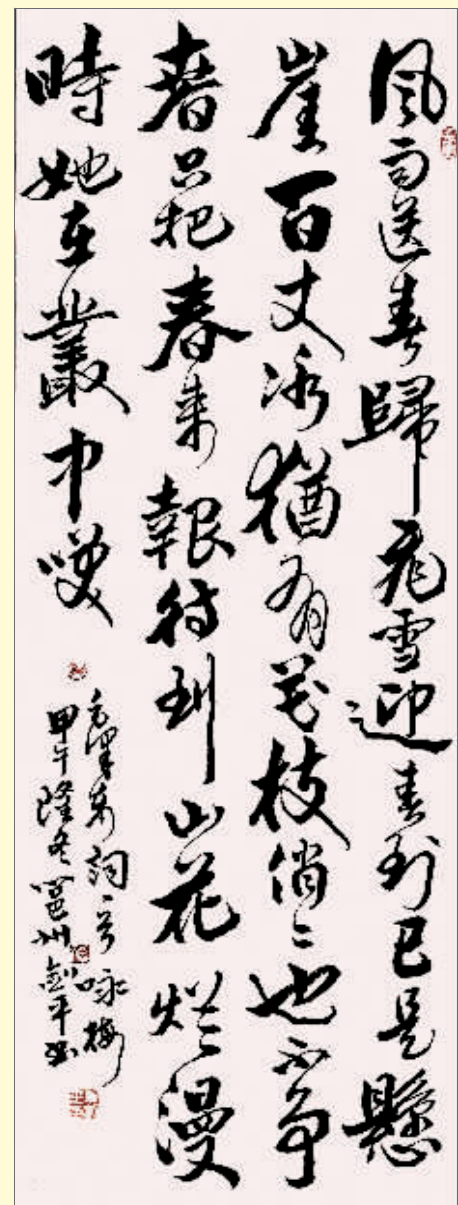 風雨送春歸飛雪迎春到已是懸
崖百丈冰猶有花枝俏〻也不争
春只把春來報待到山花烂漫
時她在叢中咲
毛澤東詞一首咏梅
甲午隆冬邕州劍平书